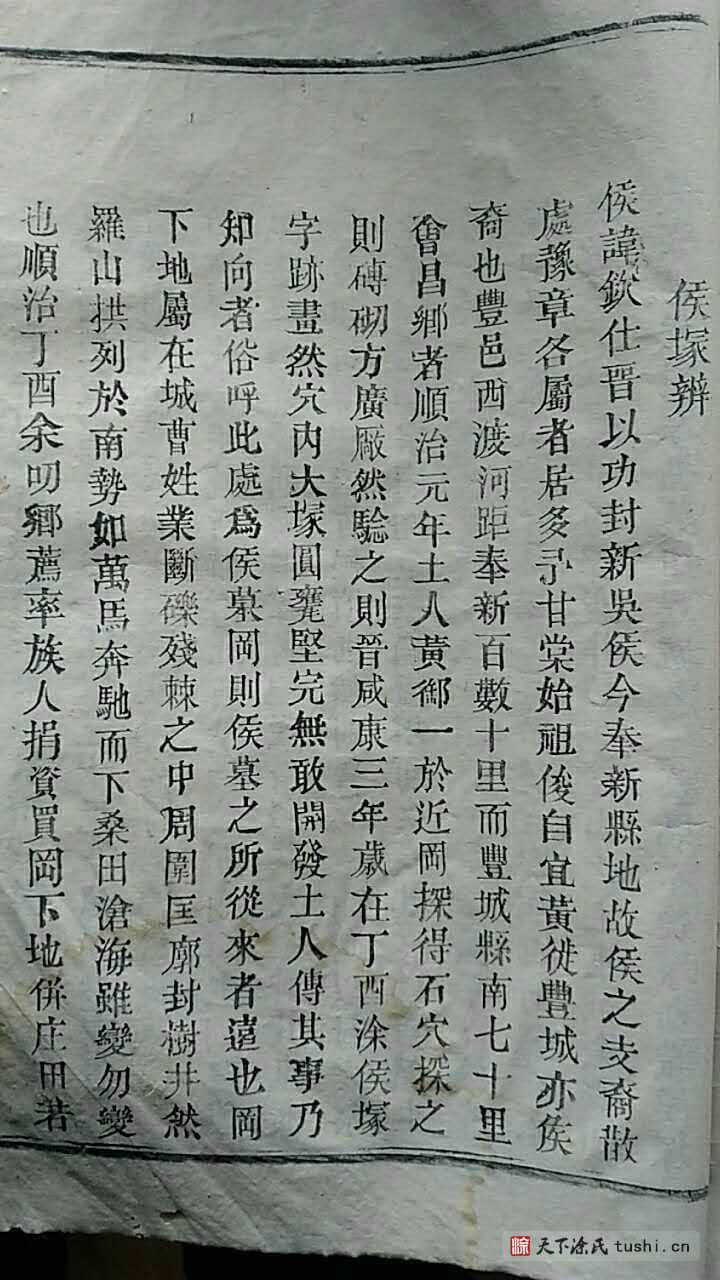 侯塚辨
侯諱欽仕晉以功封新吳侯今奉新縣地故侯之支裔散
處豫章各屬者居多予甘棠始祖俊自宜黃徙豐城亦侯
裔也豐邑西渡河距奉新百數十里而豐城縣南七十里
會昌鄉者順治元年土人黃御一於近岡探得石穴探之
則磚砌方廣厰然驗之則晉咸康三年歲在丁酉涂侯塚
字跡畫然穴內大塚圓甕堅完無敢開發土人傳其事乃
知向者俗呼此處爲侯墓岡則侯墓之所從來者遠也岡
下地屬在城曹姓業斷礫殘棘之中周圍匡廓封樹井然
羅山拱列於南勢如萬馬奔馳而下桑田滄海雖變勿變
也順治丁酉余叨鄉薦率族人捐資買岡下地併庄田若
涂 天下涂氏 tushi.cn